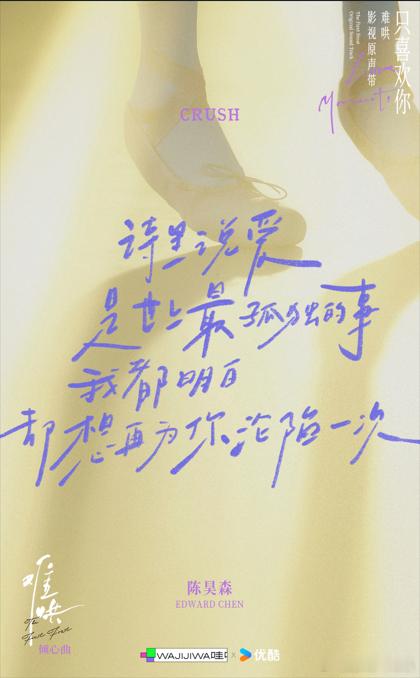 只喜欢你
难哄
影视原声带
The First Frost
Original Sound Track
CRUSH
诗里说爱
是世上最孤独的事
我都明白
却想再为你沦陷一次
难哄
The First Frost
倾心曲
陈昊森
EDWARD CHEN
WAJIJIWA哇 × 优酷